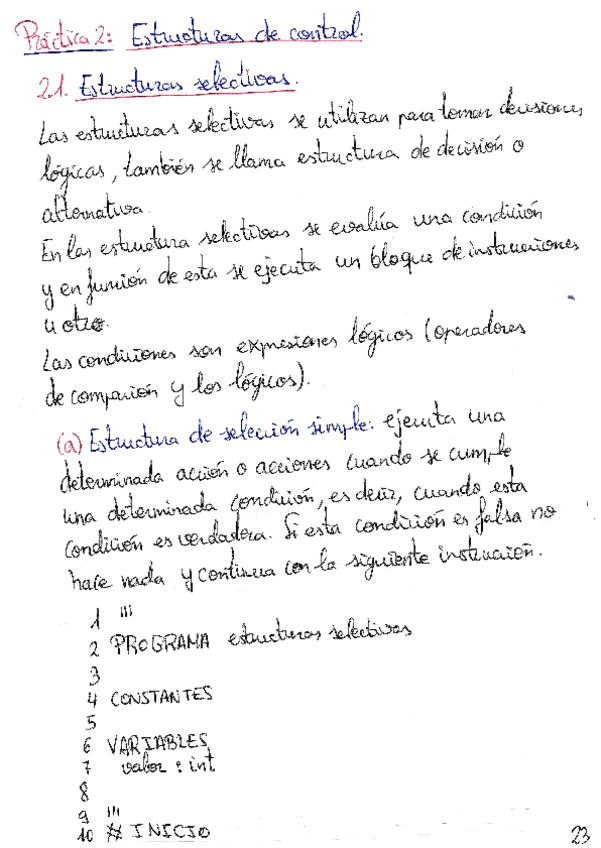 Práctica 2: Estructuras de control.
2.1. Estructuras selectivas.
Las estructuras selectivas se utilizan para tomar decisiones
lógicas, también se llama estructura de decisión o
alternativa.
En las estructura selectivas se evalúa una condición
y en función de esta se ejecuta un bloque de instrucciones
u otro.
Las condiciones son expresiones lógicos (operadores
de comparión y los lógicos).
(a) Estructura de selección simple: ejecuta una
determinada acción o acciones cuando se cumple
una determinada condición, es decir, cuando esta
condición es verdadera. Si esta condición es falsa no
hace nada y continua con la siguiente instrucción.
1 '''
2 PROGRAMA estructuras selectivas
3
4 CONSTANTES
5
6 VARIABLES
7 valor : int
8
9 '''
10 # INICIO
23